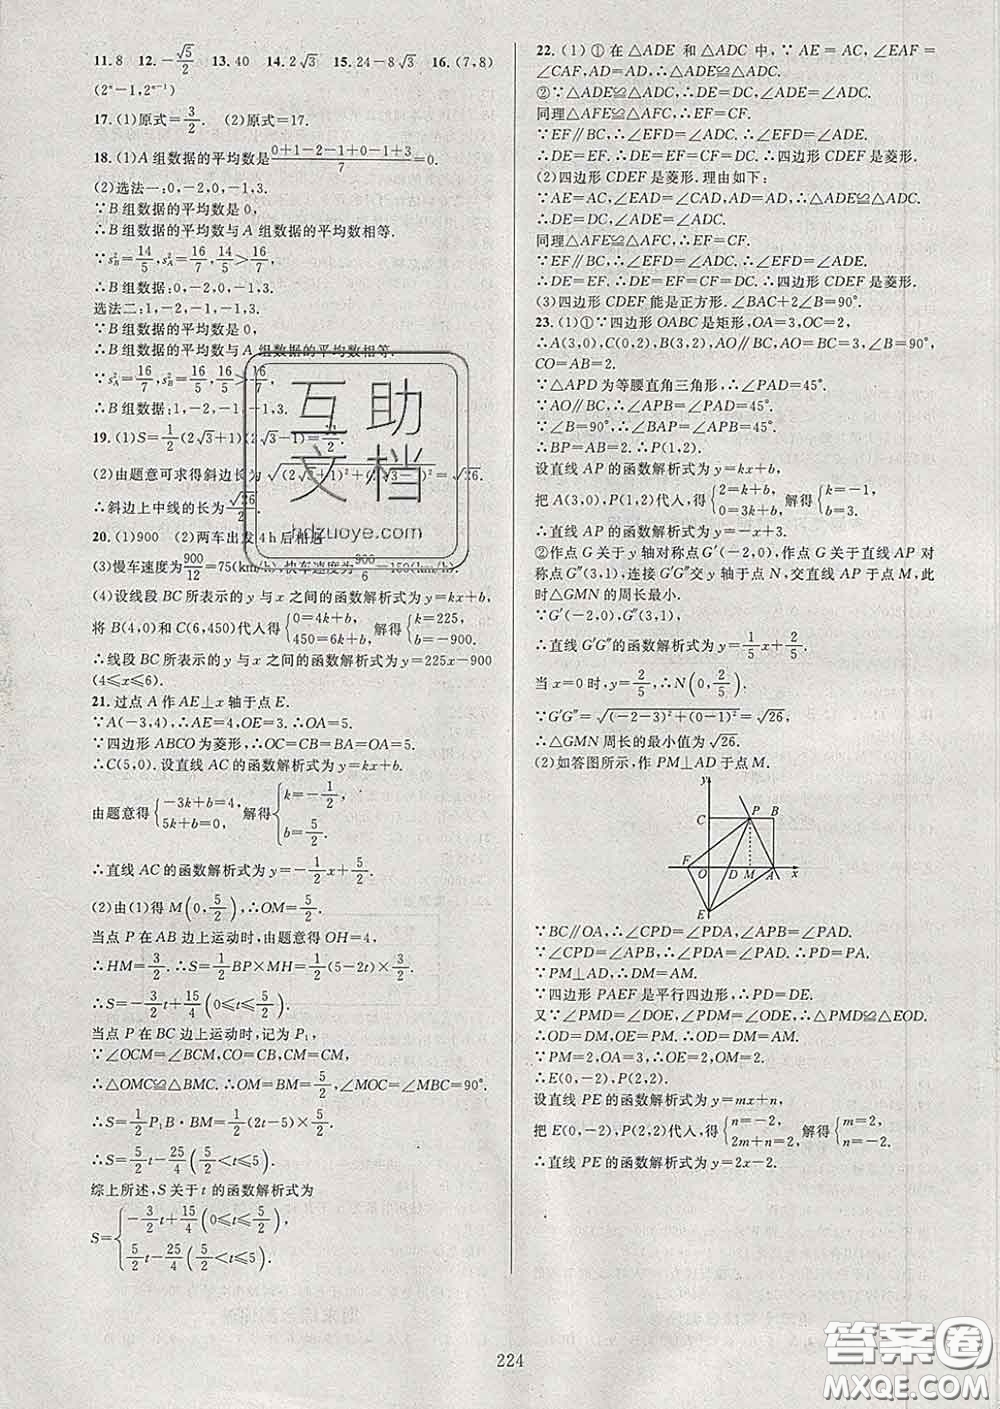 11. 8　12. -√5/2　13. 40　14. 2√3　15. 24-8√3　16. (7,8)
(2ⁿ-1,2ⁿ⁻¹)
17. (1)原式=3/2.　(2)原式=17.
18. (1)A组数据的平均数是(0+1-2-1+0-1+3)/7=0.
(2)选法一:0,-2,0,-1,3.
∵B组数据的平均数是0,
∴B组数据的平均数与A组数据的平均数相等.
∵s²_B=14/5,s²_A=16/7,14/5>16/7,
∴B组数据:0,-2,0,-1,3.
选法二:1,-2,-1,-1,3.
∵B组数据的平均数是0,
∴B组数据的平均数与A组数据的平均数相等.
∵s²_A=16/7,s²_B=16/5,16/5>16/7,
∴B组数据:1,-2,-1,-1,3.
19. (1)S=1/2(2√3+1)(2√3-1)=11/2.
(2)由题意可求得斜边长为√((2√3+1)²+(2√3-1)²)=√26.
∴斜边上中线的长为√26/2.
20. (1)900　(2)两车出发4 h后相遇
(3)慢车速度为900/12=75(km/h),快车速度为900/6=150(km/h).
(4)设线段BC所表示的y与x之间的函数解析式为y=kx+b,
将B(4,0)和C(6,450)代人得{0=4k+b, 450=6k+b,解得{k=225, b=-900.
∴线段BC所表示的y与x之间的函数解析式为y=225x-900
(4≤x≤6).
21. 过点A作AE⊥x轴于点E.
∵A(-3,4),∴AE=4,OE=3.∴OA=5.
∵四边形ABCO为菱形,∴OC=CB=BA=OA=5.
∴C(5,0).设直线AC的函数解析式为y=kx+b,
由题意得{-3k+b=4, 5k+b=0,解得{k=-1/2, b=5/2.
∴直线AC的函数解析式为y=-1/2x+5/2.
(2)由(1)得M(0,5/2),∴OM=5/2.
当点P在AB边上运动时,由题意得OH=4,
∴HM=3/2.∴S=1/2BP×MH=1/2(5-2t)×3/2.
∴S=-3/2t+15/4(0≤t≤5/2).
当点P在BC边上运动时,记为P₁,
∵∠OCM=∠BCM,CO=CB,CM=CM,
∴△OMC≌△BMC.∴OM=BM=5/2,∠MOC=∠MBC=90°.
∴S=1/2P₁B·BM=1/2(2t-5)×5/2.
∴S=5/2t-25/4(5/2<t≤5).
综上所述,S关于t的函数解析式为
S={-3/2t+15/4(0≤t≤5/2),
5/2t-25/4(5/2<t≤5).
22. (1)①在△ADE和△ADC中,∵AE=AC,∠EAF=
∠CAF,AD=AD,∴△ADE≌△ADC.
②∵△ADE≌△ADC,∴DE=DC,∠ADE=∠ADC.
同理△AFE≌△AFC,∴EF=CF.
∵EF∥BC,∴∠EFD=∠ADC.∴∠ADE=∠EFD.
∴DE=EF.∴DE=EF=CF=DC.∴四边形CDEF是菱形.
(2)四边形CDEF是菱形.理由如下:
∵AE=AC,∠EAD=∠CAD,AD=AD,∴△ADE≌△ADC.
∴DE=DC,∠ADE=∠ADC.
同理△AFE≌△AFC,∴EF=CF.
∵EF∥BC,∴∠EFD=∠ADC.∴∠ADE=∠EFD.
∴DE=EF.∴DE=EF=CF=DC.∴四边形CDEF是菱形.
(3)四边形CDEF能是正方形.∠BAC+2∠B=90°.
23. (1)①∵四边形OABC是矩形,OA=3,OC=2,
∴A(3,0),C(0,2),B(3,2),AO∥BC,AO=BC=3,∠B=90°,
CO=AB=2.
∵△APD为等腰直角三角形,∴∠PAD=45°.
∵AO∥BC,∴∠APB=∠PAD=45°.
∵∠B=90°,∴∠BAP=∠APB=45°.
∴BP=AB=2.∴P(1,2).
设直线AP的函数解析式为y=kx+b,
把A(3,0),P(1,2)代人,得{2=k+b, 0=3k+b,解得{k=-1, b=3.
∴直线AP的函数解析式为y=-x+3.
②作点G关于y轴对称点G′(-2,0),作点G关于直线AP对
称点G″(3,1),连接G′G″交y轴于点N,交直线AP于点M,此
时△GMN的周长最小.
∵G′(-2,0),G″(3,1),
∴直线G′G″的函数解析式为y=1/5x+2/5.
当x=0时,y=2/5,∴N(0,2/5),
∵G′G″=√((-2-3)²+(0-1)²)=√26,
∴△GMN周长的最小值为√26.
(2)如答图所示,作PM⊥AD于点M.
y
C P B
F O D M A x
E
∵BC∥OA,∴∠CPD=∠PDA,∠APB=∠PAD.
∵∠CPD=∠APB,∴∠PDA=∠PAD.∴PD=PA.
∵PM⊥AD,∴DM=AM.
∵四边形PAEF是平行四边形,∴PD=DE.
又∵∠PMD=∠DOE,∠PDM=∠ODE,∴△PMD≌△EOD.
∴OD=DM,OE=PM.∴OD=DM=AM.
∵PM=2,OA=3,∴OE=2,OM=2.
∴E(0,-2),P(2,2).
设直线PE的函数解析式为y=mx+n,
把E(0,-2),P(2,2)代人,得{n=-2, 2m+n=2,解得{m=2, n=-2.
∴直线PE的函数解析式为y=2x-2.
224
互助
文档
hdzuoye.com
答案圈
MXQE.COM